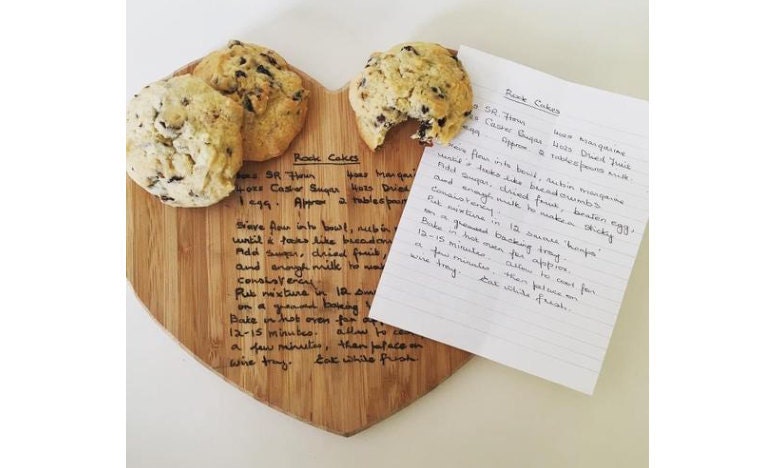 Rock Cakes
SR Flour 4ozs Margarin
4ozs Castor Sugar 4ozs Dried
1 egg. Approx 2 tablespoo
Sieve flour into bowl, rub in
until it looks like breadcrum
Add sugar, dried fruit,
and enough milk to mak
consistency.
Put mixture in 12 sm
on a greased baking
Bake in hot oven for ap
12-15 minutes. allow to co
a few minutes, then palace on
wire tray. Eat white fresh
Rock Cakes
SR Flour 4ozs Margarine
Castor Sugar 4ozs Dried Fruit
egg Approx 2 tablespoons milk.
Sieve flour into bowl, rub in margarine
until it looks like breadcrumbs
Add sugar, dried fruit, beaten egg,
and enough milk to make a sticky
consistency.
Put mixture in 12 square 'heaps'
on a greased backing tray.
Bake in hot oven for approx.
12-15 minutes. allow to cool for
a few minutes, then palace on
wire tray. Eat white fresh.